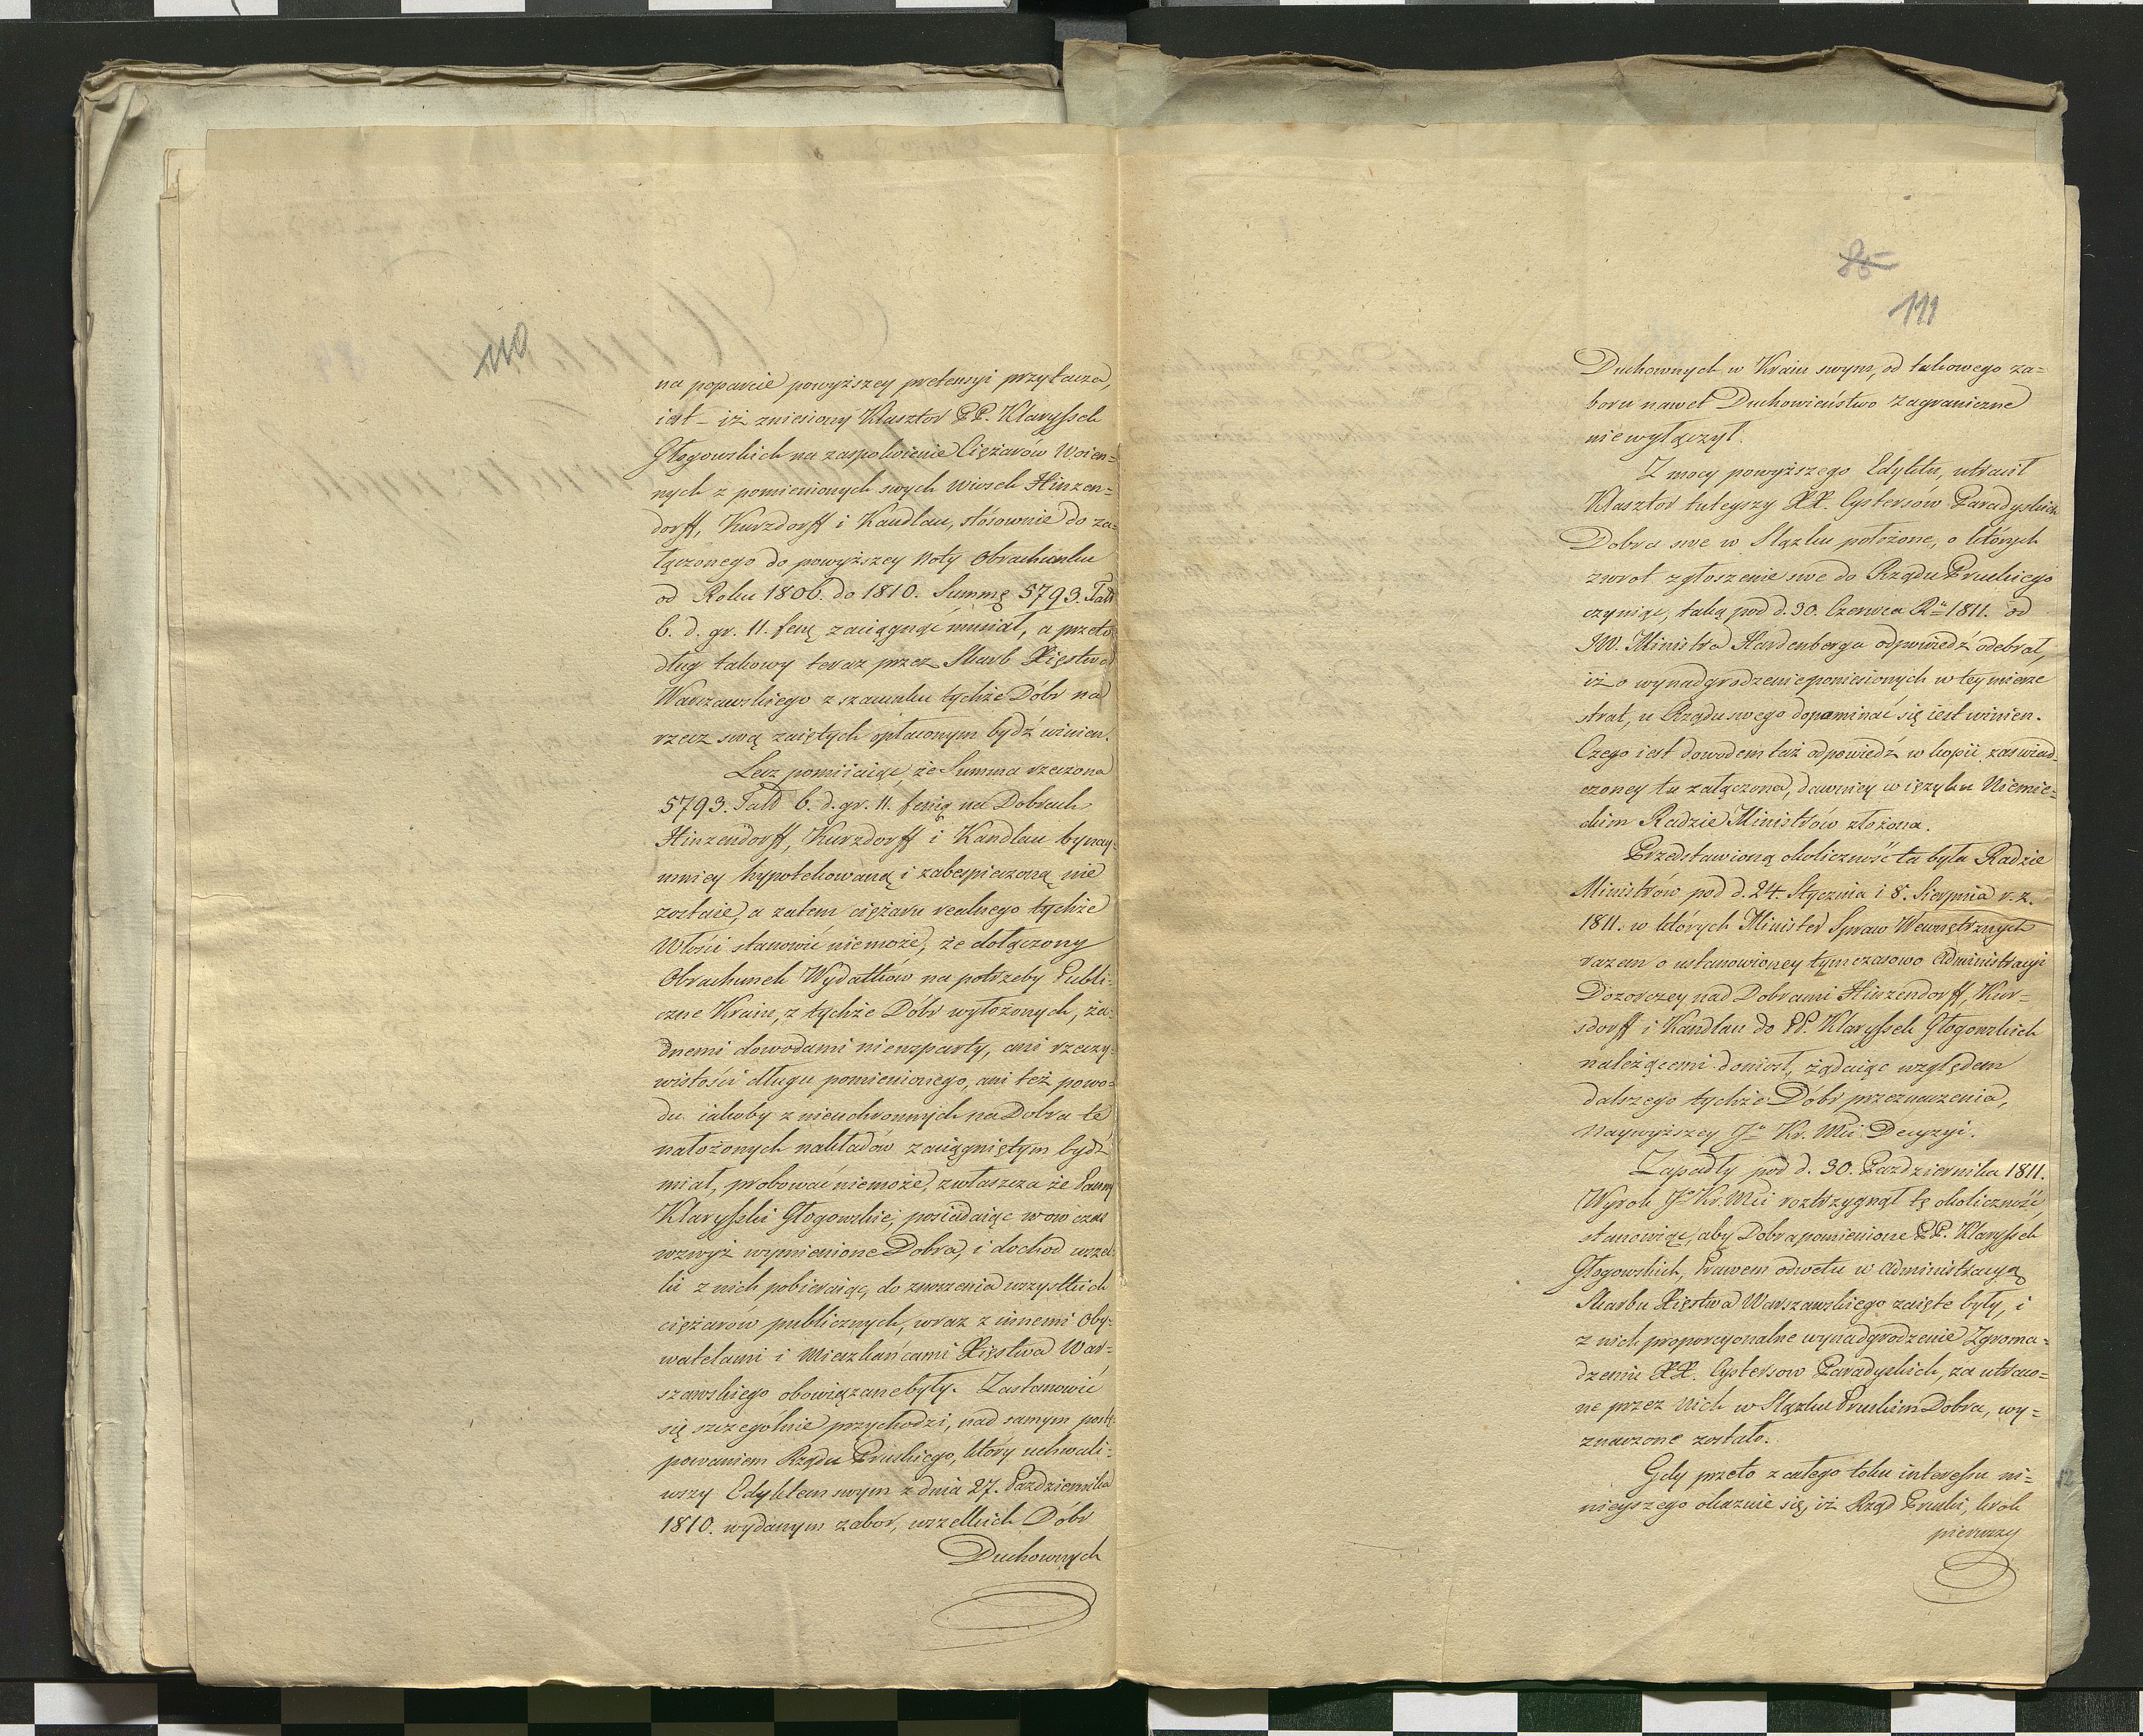 110
na poparcie powyższey pretensyi przytacza,
iest – iż zniesiony Klasztor PP. Klaryssek
Głogowskich na zaspokoienie Ciężarów Woien=
nych z pomienionych swych wiosek Hinzen=
dorff, Kurzdorff i Kandlau, stósownie do za=
łączonego do powyższey Noty Obrachunku
od Roku 1806. do 1810. Summę 5793. Tall
6. d. gr. 11. fenę zaciągnąć musiał, a przeto
dług takowy teraz przez Skarb Xięstwa
Warszawskiego z szacunku tychże Dóbr na
rzecz swą zaiętych opłaconym bydź winien.
Lecz pomiiaiąc, że Summa rzeczona
5793. Tall 6. d. gr. 11. fenig na Dobrach
Hinzendorff, Kurzdorff i Kandlau bynay=
mniey hypotekowaną i zabespieczoną nie
zostaie, a zatem ciężaru realnego tychże
Włości stanowić niemoże, że dołączony
Obrachunek Wydatków na potrzeby Publi=
czne Kraiu, z tychże Dóbr wyłożonych, ża=
dnemi dowodami niewsparty, ani rzeczy=
wistości długu pomienionego, ani też powo=
du iakoby z nieuchronnych na Dobra te
nałożonych nakładów zaciągniętym bydź
miał, probować niemoże, zwłaszcza że Panny
Klarysski Głogowskie, posiadaiąc wowczas
wzwyż wymienione Dobra, i dochod wszel=
ki z nich pobieraiąc, do znoszenia wszystkich
ciężarów publicznych, wraz z innemi Oby=
watelami i Mieszkańcami Xięstwa War=
szawskiego obowiązane były. Zastanowić
się szczegolnie przychodzi, nad samym postę=
powaniem Rządu Pruskiego, który uchwali=
wszy Edyktem swym z dnia 27. Października
1810. wydanym zabor, wszelkich Dóbr
Duchownych
85
111
Duchownych w Kraiu swym, od takowego za=
boru nawet Duchowieństwo Zagraniczne
niewyłączył.
Z mocy powyższego Edyktu, utracił
Klasztor tuteyszy XX. Cystersów Paradyskich
Dobra swe w Slązku położone, o których
zwrot zgłoszenie swe do Rządu Pruskiego
czyniąc, taką pod d. 30. Czerwca R. 1811. od
JW. Ministra Hardenberga odpowiedź odebrał,
iż o wynadgrodzenie poniesionych w tey mierze
strat, u Rządu swego dopominać się iest winien.
Czego iest dowodem taż odpowiedź w kopii zaświad=
czoney tu załączona, dawniey w ięzyku Niemie=
ckim Radzie Ministrów złożona.
Przedstawioną okoliczność ta była Radzie
Ministrów pod d. 24. Stycznia i 8. Sierpnia r. z.
1811. w których Minister Spraw Wewnętrznych
razem o ustanowioney tymczasowo Administracyi
Dozorczey nad Dobrami Hinzendorff, Kur=
sdorff i Kandlau do PP. Klaryssek Głogowskich
należącemi doniosł, żądaiąc względem
dalszego tychże Dóbr przeznaczenia,
Naywyższey Jo Kr. Mci Decyzyi.
Zapadły pod d. 30. Października 1811.
Wyrok Jo Kr. Mci roztrzygnął tę okoliczność,
stanowiąc, aby Dobra pomienione PP. Klaryssek
Głogowskich, Prawem odwetu w Administracyą
Skarbu Xięstwa Warszawskiego zaięte były, i
z nich proporcyonalne wynadgrodzenie Zgroma=
dzeniu XX. Cystersow Paradyskich, za utraco=
ne przez nich w Slązku Pruskim Dobra, wy=
znaczone zostało.
Gdy przeto z całego toku interessu ni=
nieyszego okazuie się, iż Rząd Pruski, krok
pierwszy